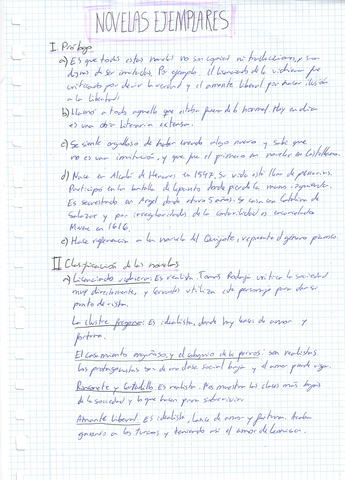 NOVELAS EJEMPLARES
I Prólogo
a) Es que todas estas novelas no son copiadas ni traducciones, y son
dignas de ser imitadas. Por ejemplo. El licenciado de la vidriera fue
criticado por decir la verdad y el amante liberal por hacer ilusión
a la libertad.
b) Llamó a todo aquello que estaba fuera de lo normal. Hoy en día
es una obra literaria extensa.
c) Se siente orgulloso de haber creado algo nuevo y sabe que
no es una imitación, y que fue el primero en novelar en Castellano.
d) Nace en Alcalá de Henares en 1547. Su vida esté llena de penurias.
Participa en la batalla de Lepanto donde pierde la mano izquierda.
Es secuestrado en Argel donde estuvo 5 años. Se casa con Catalina de
Salazar y por irregularidades de la contabilidad es encarcelado
Muere en 1616.
e) Hace referencia a la novela del Quijote, respecto al género picaresco
II Clasificación de las novelas
a) Licenciado vidriera: Es realista. Tomás Rodaja critica la sociedad
muy directamente, y Cervantes utiliza este personaje para dar su
punto de vista.
La ilustre fregona: Es idealista, donde hay lances de amor y
fortuna.
El casamiento engañoso, y el coloquio de los perros: son realistas.
Los protagonistas son de una clase social baja y el amor puede
Rinconete y Cortadillo: Es realista. Nos muestran las clases más bajas
de la sociedad y lo que hacen para sobrevivir.
Amante Liberal: Es idealista, lance de amor y fortuna. Acaban
ganando a los turcos y teniendo así el amor de Leonisa.